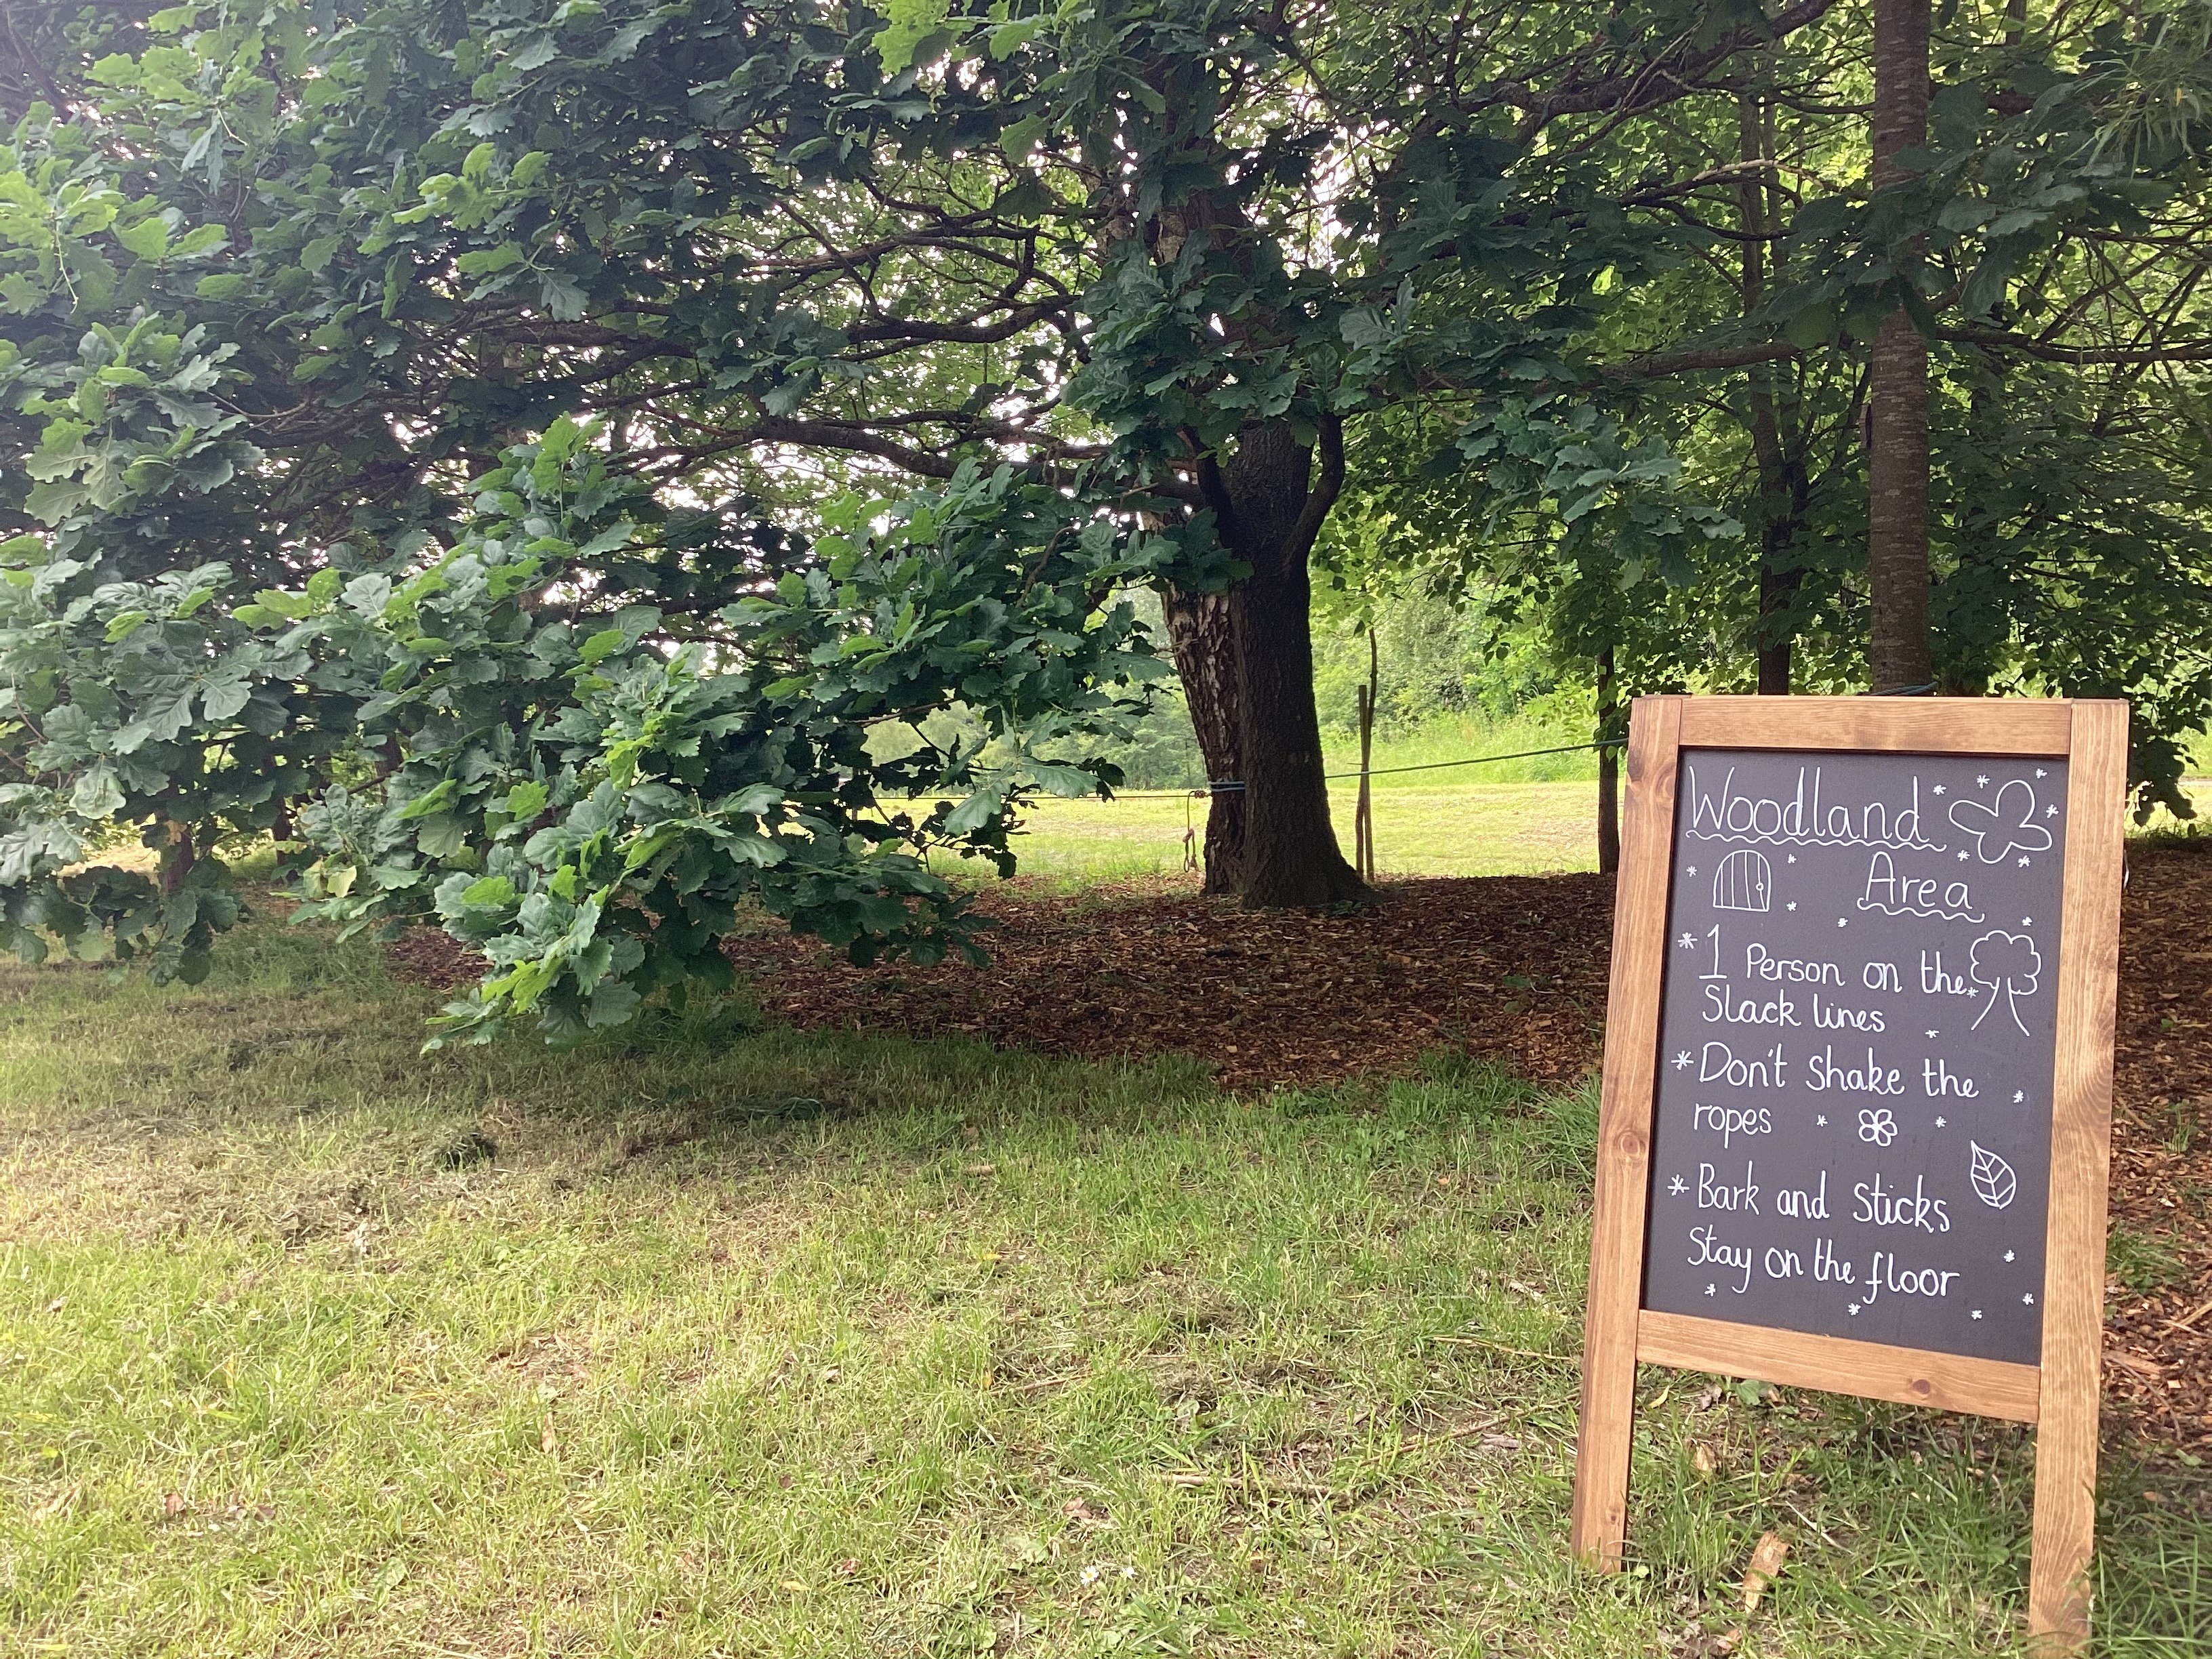 Woodland
Area
* 1 Person on the
Slack lines
* Don't Shake the
ropes
* Bark and Sticks
Stay on the floor